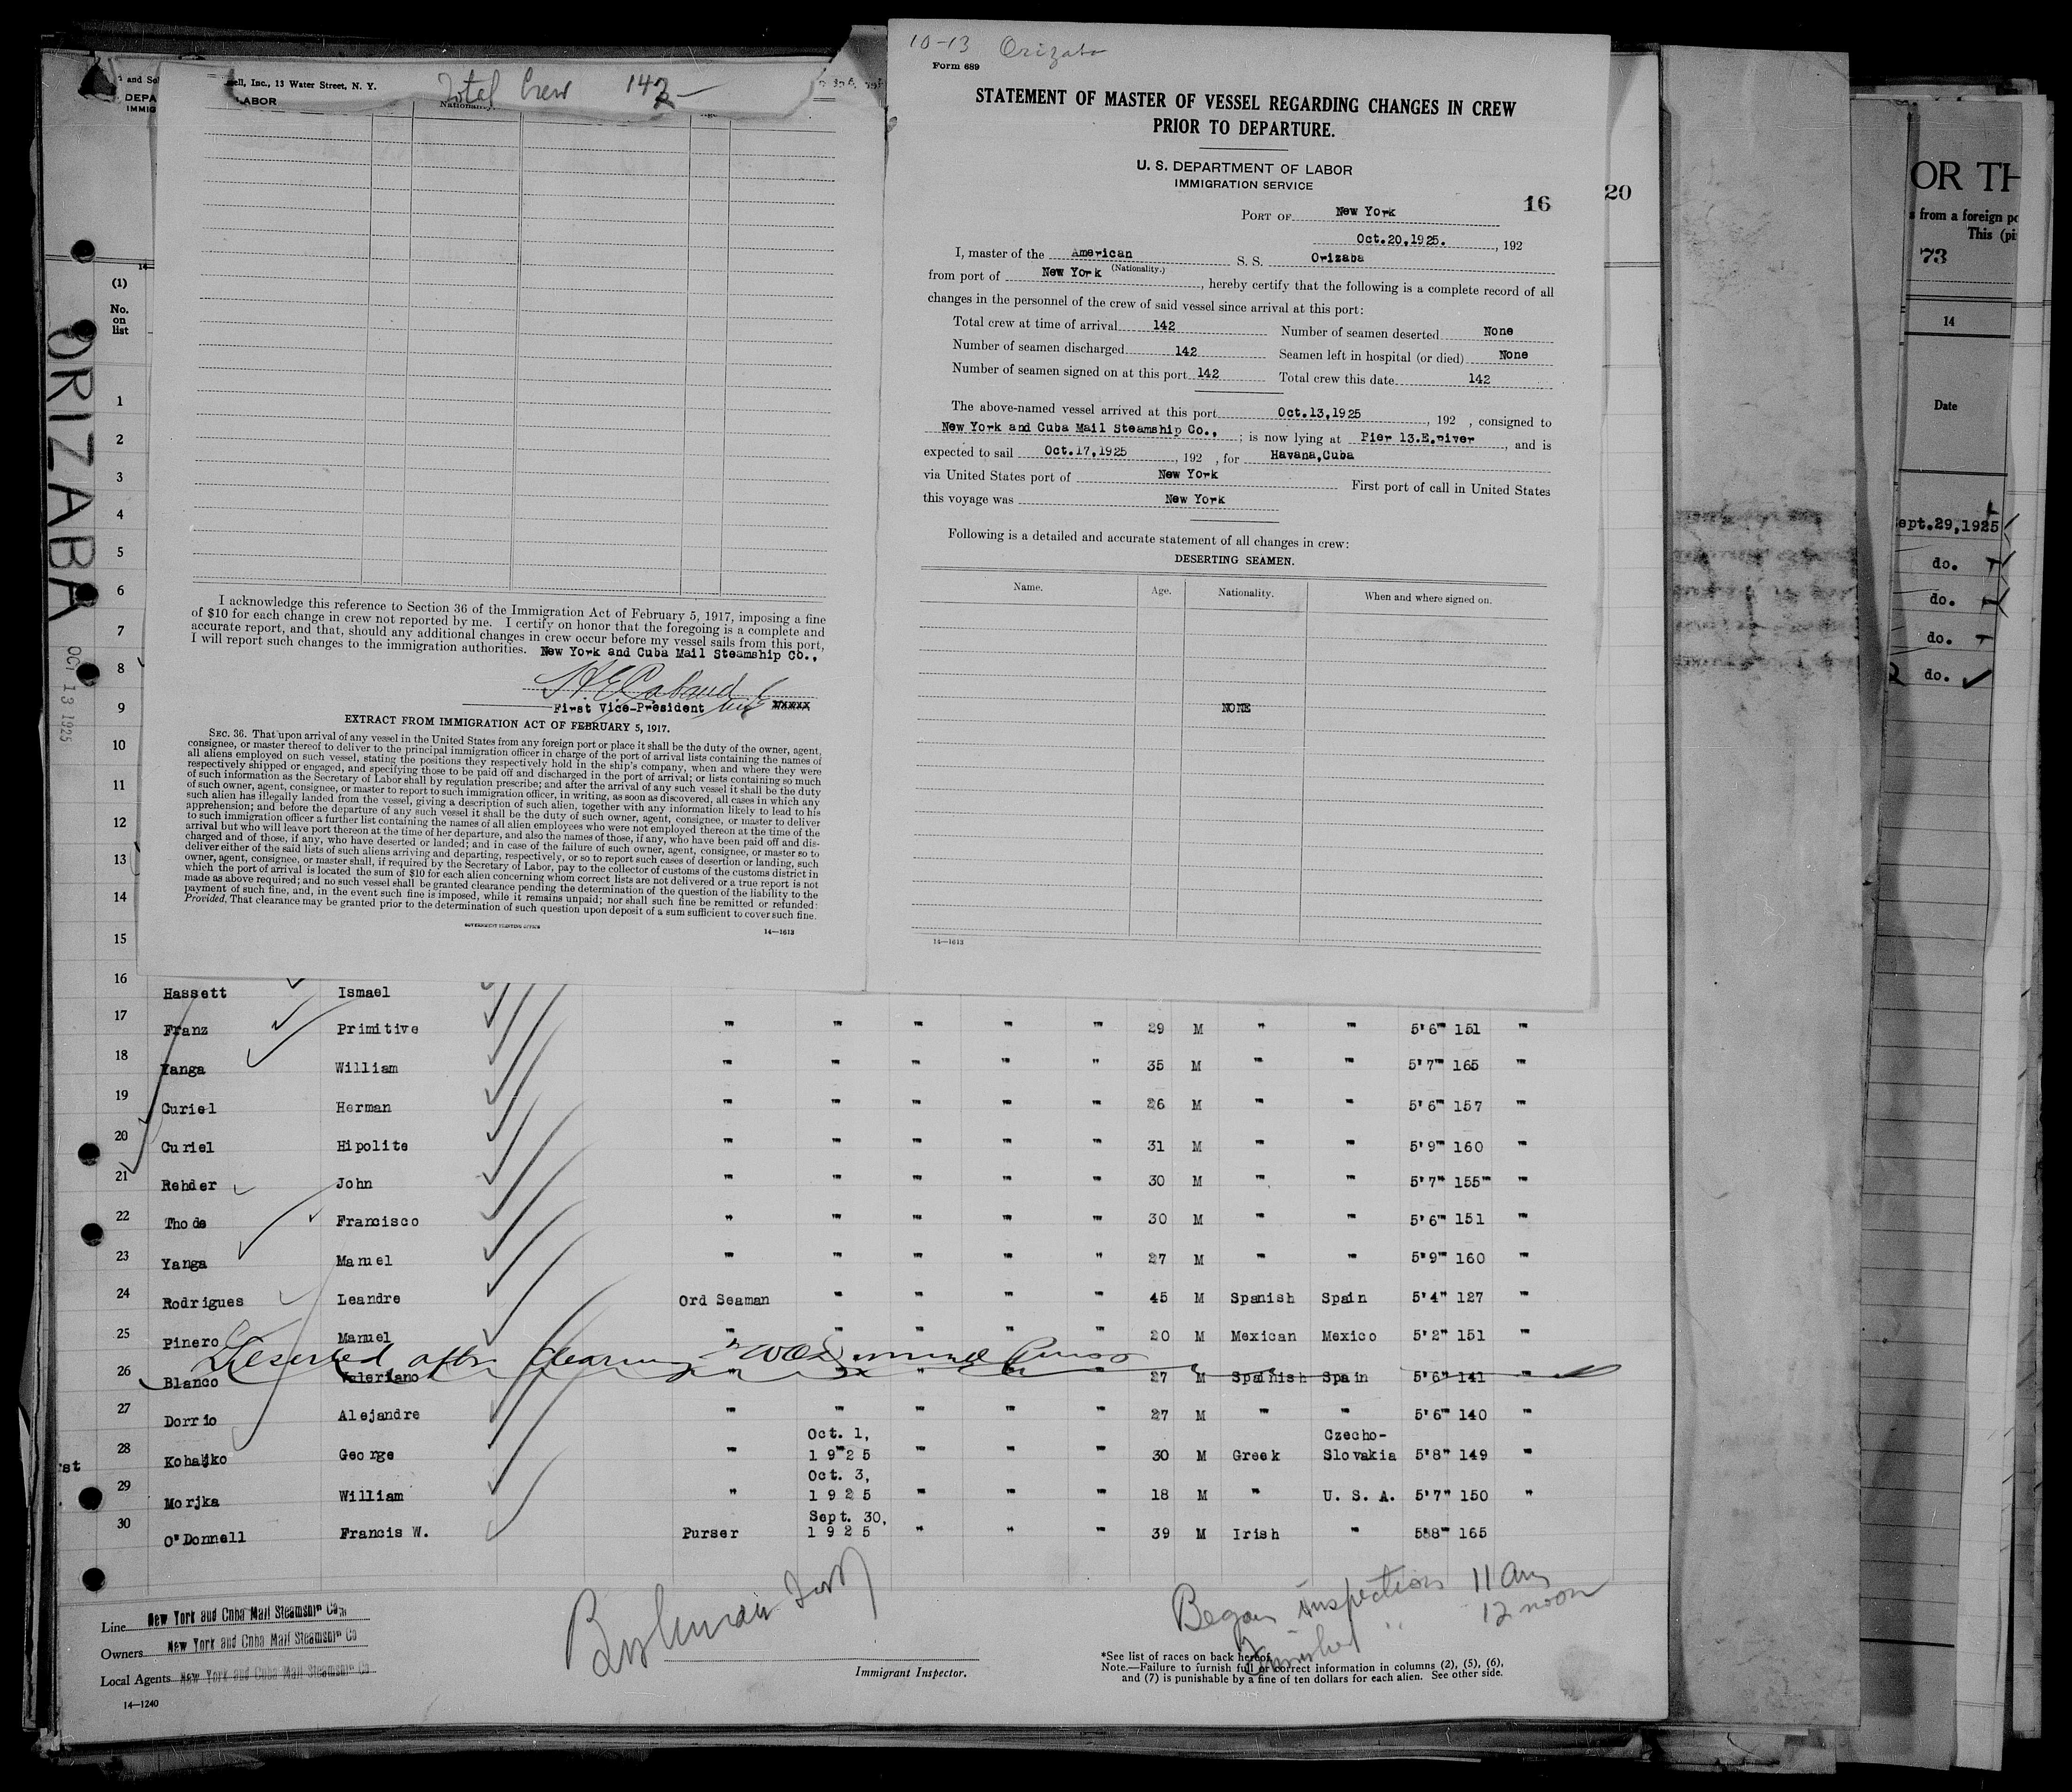 ell, Inc., 13 Water Street, N. Y.
Total Crew 142 —
LABOR
Nationality.
I acknowledge this reference to Section 36 of the Immigration Act of February 5, 1917, imposing a fine
of $10 for each change in crew not reported by me. I certify on honor that the foregoing is a complete and
accurate report, and that, should any additional changes in crew occur before my vessel sails from this port,
I will report such changes to the immigration authorities. New York and Cuba Mail Steamship Co.,
First Vice-President
EXTRACT FROM IMMIGRATION ACT OF FEBRUARY 5, 1917.
SEC. 36. That upon arrival of any vessel in the United States from any foreign port or place it shall be the duty of the owner, agent,
consignee, or master thereof to deliver to the principal immigration officer in charge of the port of arrival lists containing the names of
all aliens employed on such vessel, stating the positions they respectively hold in the ship's company, when and where they were
respectively shipped or engaged, and specifying those to be paid off and discharged in the port of arrival; or lists containing so much
of such information as the Secretary of Labor shall by regulation prescribe; and after the arrival of any such vessel it shall be the duty
of such owner, agent, consignee, or master to report to such immigration officer, in writing, as soon as discovered, all cases in which any
such alien has illegally landed from the vessel, giving a description of such alien, together with any information likely to lead to his
apprehension; and before the departure of any such vessel it shall be the duty of such owner, agent, consignee, or master to deliver
to such immigration officer a further list containing the names of all alien employees who were not employed thereon at the time of the
arrival but who will leave port thereon at the time of her departure, and also the names of those, if any, who have been paid off and dis-
charged and of those, if any, who have deserted or landed; and in case of the failure of such owner, agent, consignee, or master so to
deliver either of the said lists of such aliens arriving and departing, respectively, or so to report such cases of desertion or landing, such
owner, agent, consignee, or master shall, if required by the Secretary of Labor, pay to the collector of customs of the customs district in
which the port of arrival is located the sum of $10 for each alien concerning whom correct lists are not delivered or a true report is not
made as above required; and no such vessel shall be granted clearance pending the determination of the question of the liability to the
payment of such fine, and, in the event such fine is imposed, while it remains unpaid; nor shall such fine be remitted or refunded:
Provided, That clearance may be granted prior to the determination of such question upon deposit of a sum sufficient to cover such fine.
GOVERNMENT PRINTING OFFICE
14—1613
10-13 Orizaba
Form 689
STATEMENT OF MASTER OF VESSEL REGARDING CHANGES IN CREW
PRIOR TO DEPARTURE.
U. S. DEPARTMENT OF LABOR
IMMIGRATION SERVICE
16
PORT OF New York
Oct.20,1925. , 192
I, master of the American S. S. Orizaba
(Nationality.)
from port of New York , hereby certify that the following is a complete record of all
changes in the personnel of the crew of said vessel since arrival at this port:
Total crew at time of arrival 142 Number of seamen deserted None
Number of seamen discharged 142 Seamen left in hospital (or died) None
Number of seamen signed on at this port 142 Total crew this date 142
The above-named vessel arrived at this port Oct.13,1925 , 192 , consigned to
New York and Cuba Mail Steamship Co., ; is now lying at Pier 13.E.river , and is
expected to sail Oct.17,1925 , 192 , for Havana,Cuba
via United States port of New York First port of call in United States
this voyage was New York
Following is a detailed and accurate statement of all changes in crew:
DESERTING SEAMEN.
Name. Age. Nationality. When and where signed on.
NONE
14—1613
20
and
DEPA
IMMIG
(1)
No.
on
list
ORIZABA
OCT 13 1925
1
2
3
4
5
6
7
8
9
10
11
12
13
14
15
16 Hassett Ismael
17 Franz Primitive " " " " " 29 M " " 5'6" 151 "
18 Yanga William " " " " " 35 M " " 5'7" 165 "
19 Curiel Herman " " " " " 26 M " " 5'6" 157 "
20 Curiel Hipolite " " " " " 31 M " " 5'9" 160 "
21 Rehder John " " " " " 30 M " " 5'7" 155" "
22 Thode Francisco " " " " " 30 M " " 5'6" 151 "
23 Yanga Manuel " " " " " 27 M " " 5'9" 160 "
24 Rodrigues Leandre Ord Seaman " " " " 45 M Spanish Spain 5'4" 127 "
25 Pinero Manuel " " " " " 20 M Mexican Mexico 5'2" 151 "
Deserted after clearing
26 Blanco Valeriano " " " " " 27 M Spanish Spain 5'6" 141 "
27 Dorrio Alejandre " " " " " 27 M " " 5'6" 140 "
28 Kohajko George " Oct. 1, 1925 " " " 30 M Greek Czecho-Slovakia 5'8" 149 "
29 Morjka William " Oct. 3, 1925 " " " 18 M " U. S. A. 5'7" 150 "
30 O'Donnell Francis W. Purser Sept. 30, 1925 " " " 39 M Irish " 5'8" 165
Line New York and Cuba Mail Steamship Co.
Owners New York and Cuba Mail Steamship Co
Local Agents New York and Cuba Mail Steamship Co
14—1240
Immigrant Inspector.
Began inspection 11 am
Finished " 12 noon
*See list of races on back hereof.
Note.—Failure to furnish full or correct information in columns (2), (5), (6),
and (7) is punishable by a fine of ten dollars for each alien. See other side.
OR TH
from a foreign po
This (pi
73
14
Date
ept.29,1925
do.
do.
do.
do.